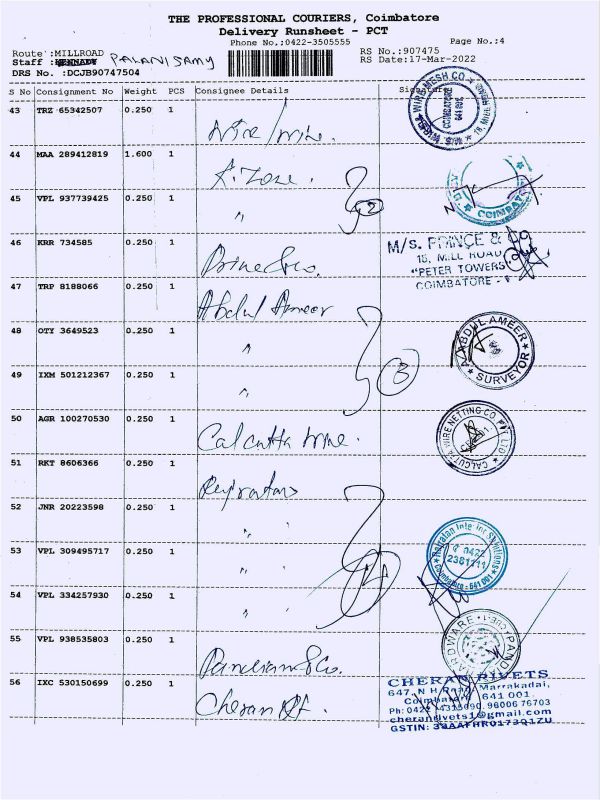 THE PROFESSIONAL COURIERS, Coimbatore
Delivery Runsheet - PCT
Phone No.;0422-3505555 Page No.;4
Route :MILLROAD RS No.:907475
Staff : PALANISAMY RS Date:17-Mar-2022
DRS No. :DCJB90747504
S No Consignment No Weight PCS Consignee Details Signature
43 TRZ 65342507 0.250 1
WIRE MESH CO
COIMBATORE
641 001
44 MAA 289412819 1.600 1
A. Zone.
45 VPL 937739425 0.250 1
" 2
COIMBATORE
46 KRR 734585 0.250 1
Prince & Co.
M/S. PRINCE & CO
15, MILL ROAD
"PETER TOWERS"
COIMBATORE -
47 TRP 8188066 0.250 1
Abdul Ameer
48 OTY 3649523 0.250 1
"
A. ABDUL AMEER
SURVEYOR
49 IXM 501212367 0.250 1
" 3
50 AGR 100270530 0.250 1
Calcutta wire.
CALCUTTA WIRE NETTING CO. PVT LTD
51 RKT 8606366 0.250 1
52 JNR 20223598 0.250 1
" "
53 VPL 309495717 0.250 1
" " 4
0422
Coimbatore - 641 001
54 VPL 334257930 0.250 1
" "
55 VPL 938535803 0.250 1
Pandian & Co.
HARDWARE
56 IXC 530150699 0.250 1
Cheran
CHERAN RIVETS
647, N H Road, Marrakadai,
Coimbatore 641 001.
96006 76703
cheranrivets1@gmail.com
GSTIN: